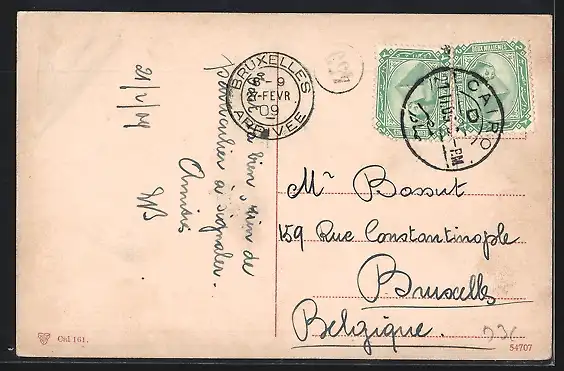 BRUXELLES
8-9
FEVR
09
ARRIVEE
DEUX MILLIEMES
CAIRO
D
PM
21/1/09
bien. Rien de
particulier à signaler.
Amitiés
Mr Bossut
159 Rue Constantinople
Bruxelles
Belgique.
Cal 161.
54707